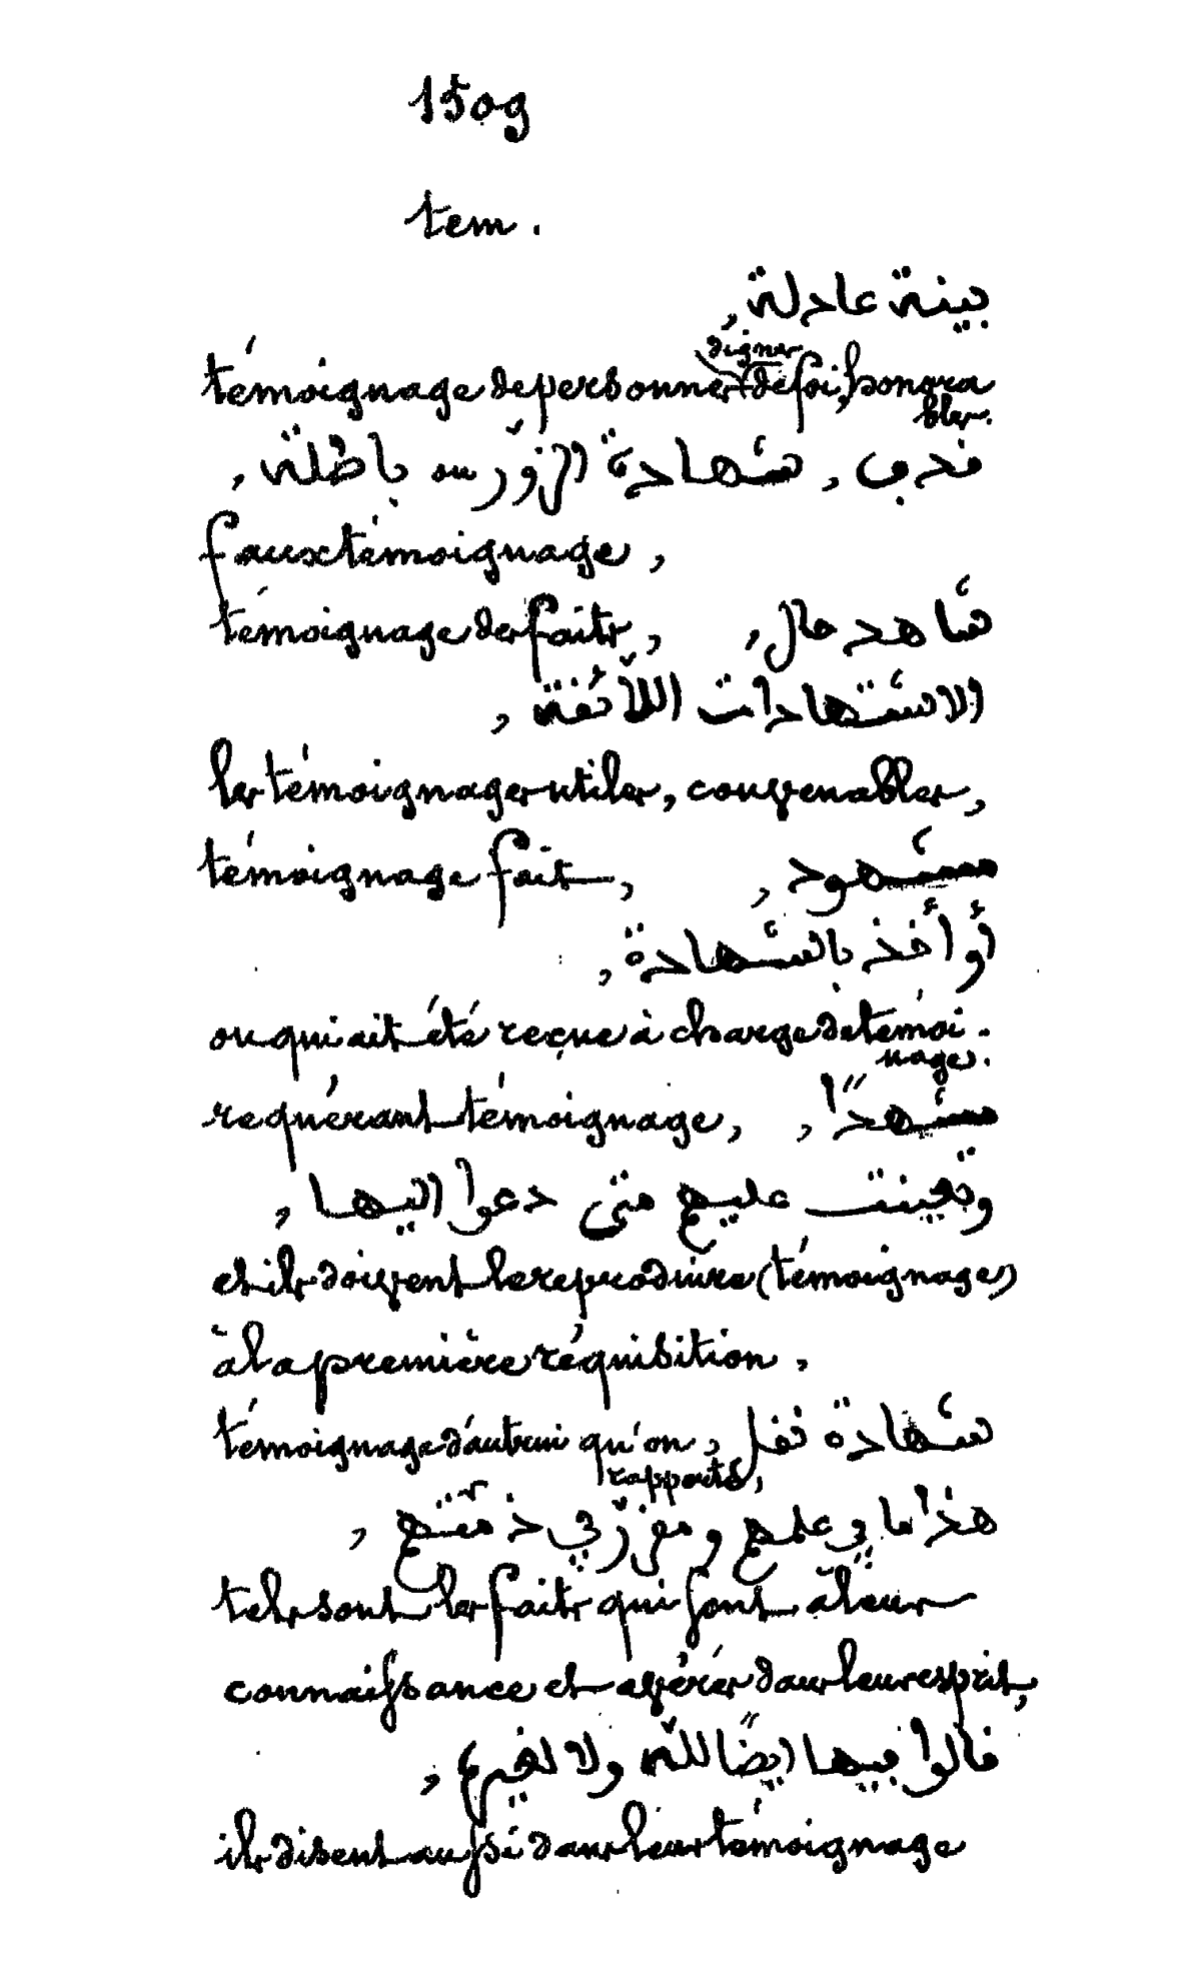 1509
tem.
بينة عادلة,
témoignage de personnes dignes de foi, honora
bles.
شهادة الزوّر ou باطلة,
faux témoignage,
témoignage des faits, شاهد حال,
الاستشهادات اللّائقة,
les témoignages utiles, convenables,
témoignage fait, مشهود,
أو أخذ بالشهادة,
ou qui ait été reçue à charge de témoi-
nage.
requérant témoignage, مشهدًا,
وتعينت عليهم متى دعوا اليها,
et ils doivent le reproduire (témoignage)
à la première réquisition.
témoignage d'autrui qu'on شهادة نقل,
rapporte,
هذا ما في علمهم ومقرّر في ذمّتهم,
tels sont les faits qui sont à leur
connaissance et avérés dans leur esprit,
قالوا فيها ايضًا للّه ولا لغيره,
ils disent aussi dans leur témoignage